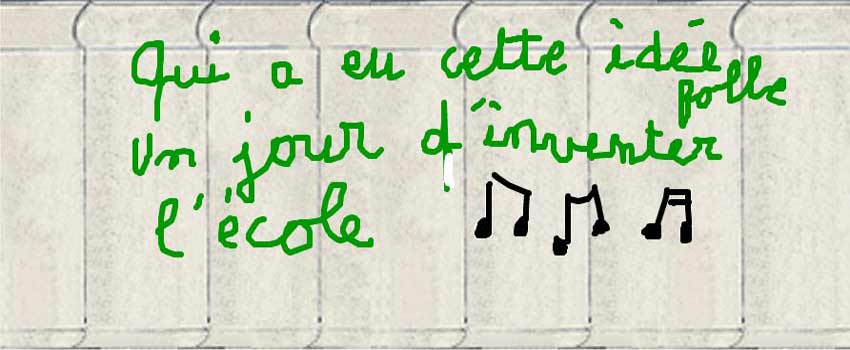 Qui a eu cette idée folle
un jour d'inventer
l'école